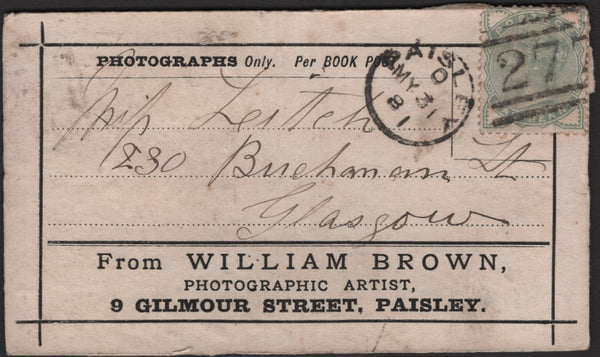 PHOTOGRAPHS Only. Per BOOK POST
PAISLEY
O
MY 31
81
27
Miss Leitch
230 Buchanan St
Glasgow
From WILLIAM BROWN,
PHOTOGRAPHIC ARTIST,
9 GILMOUR STREET, PAISLEY.